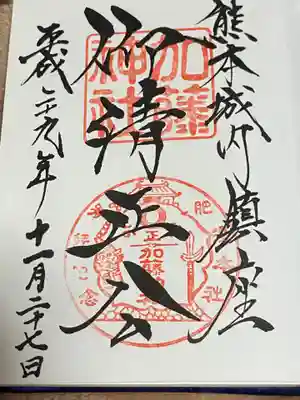 熊本城内鎮座
加藤神社
仰清正公
平成二九年十一月二十七日